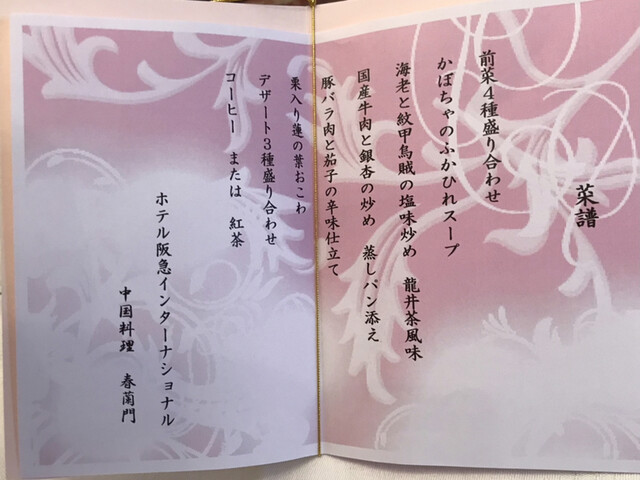 菜譜
前菜4種盛り合わせ
かぼちゃのふかひれスープ
海老と紋甲烏賊の塩味炒め 龍井茶風味
国産牛肉と銀杏の炒め 蒸しパン添え
豚バラ肉と茄子の辛味仕立て
栗入り蓮の葉おこわ
デザート3種盛り合わせ
コーヒー または 紅茶
ホテル阪急インターナショナル
中国料理 春蘭門